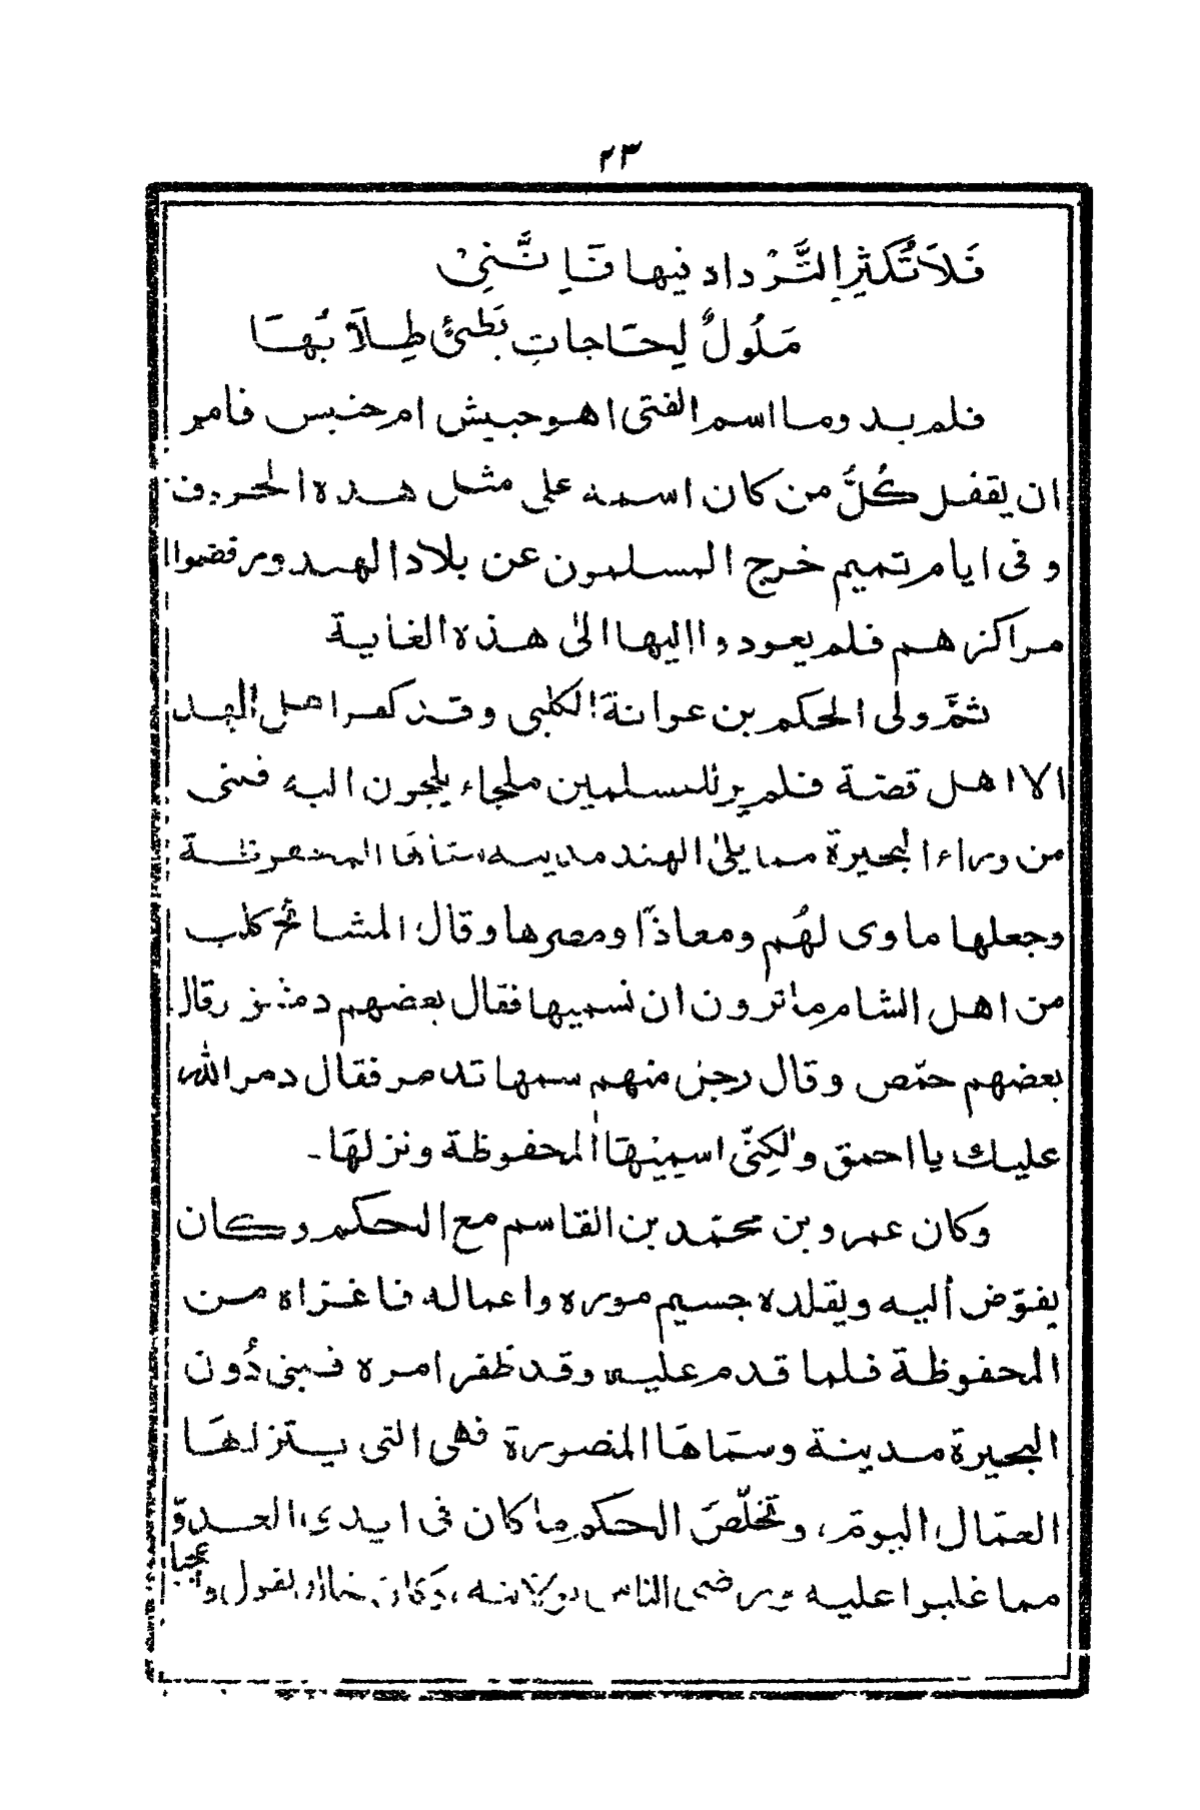 ٢٣
فَلاَ تُكثِرِ التَّرْدادَ فيها فَاِنَّنِىْ
مَلُولٌ لِحَاجاتٍ بَطئٍ طِلَابُهَا
فلم يد وما اسم الفتى اهو حبيش ام خنبس فامر
ان يقفل كُلَّ من كان اسمه على مثل هذه الحروف
و فى ايام تميم خرج المسلمون عن بلاد الهند ورفضوا
مراكزهم فلم يعودوا اليها الىٰ هذه الغاية
ثمَّ ولى الحكم بن عوانة الكلبى وقد كفر اهل الهند
الا اهل قصة فلم ير للمسلمين ملجاء يلجون اليه فبنى
من وراء البحيرة مما يلى الهند مدينه سماها المحفوظة
وجعلها ماوى لهُم ومعاذًا ومصرها وقال المشائخ كلب
من اهل الشام ما ترون ان نسميها فقال بعضهم دمشق وقال
بعضهم حمّص وقال رجل منهم سمها تدمر فقال دمر الله
عليك يا احمق ولٰكِنّى اسميتها المحفوظة ونزلهَا۔
وكان عمرو بن محمّد بن القاسم مع الحكم وكان
يفوّض أليه ويقلده جسيم موره واعماله فاغزاه من
المحفوظة فلما قدم عليه وقد ظفر امره فبنى دُون
البحيرة مدينة وسمّاهَا المنصورة فهى التى يتزلهَا
العمّال اليوم، وتخلّصَ الحكم ما كان فى ايدى العدوّ
مما غلبوا عليه ورضى الناس بولايته، وكان خالد يقول واعجبا